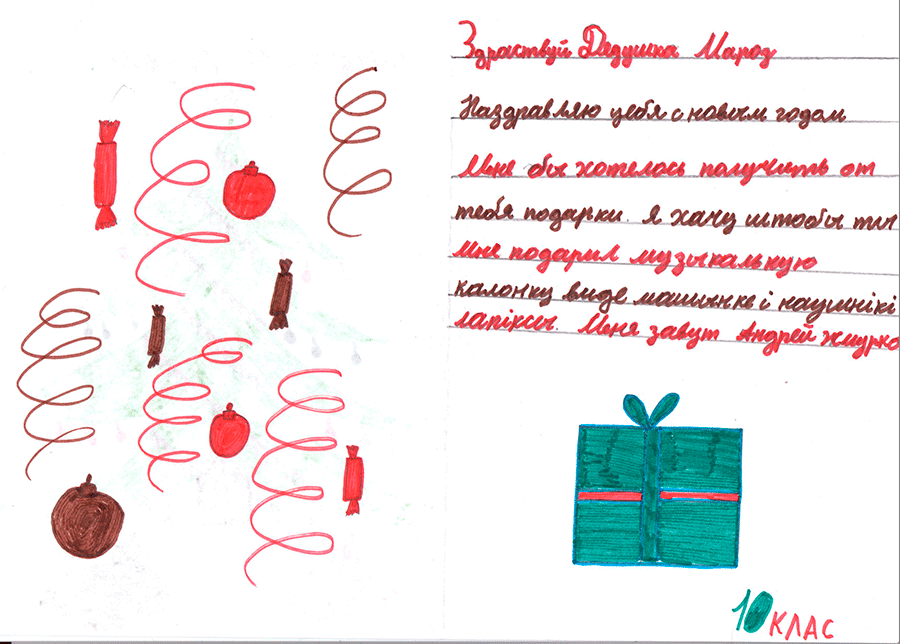 Здраствуй Дедушка Мароз
Паздравляю цебя с новым годом
Мне бы хотелось получить от
тебя подарки. Я хачу штобы ты
мне подарил музыкалькую
калонку виде машынке і наушнікі
лапіксы. Меня завут Андрей Жмурко
10 КЛАС